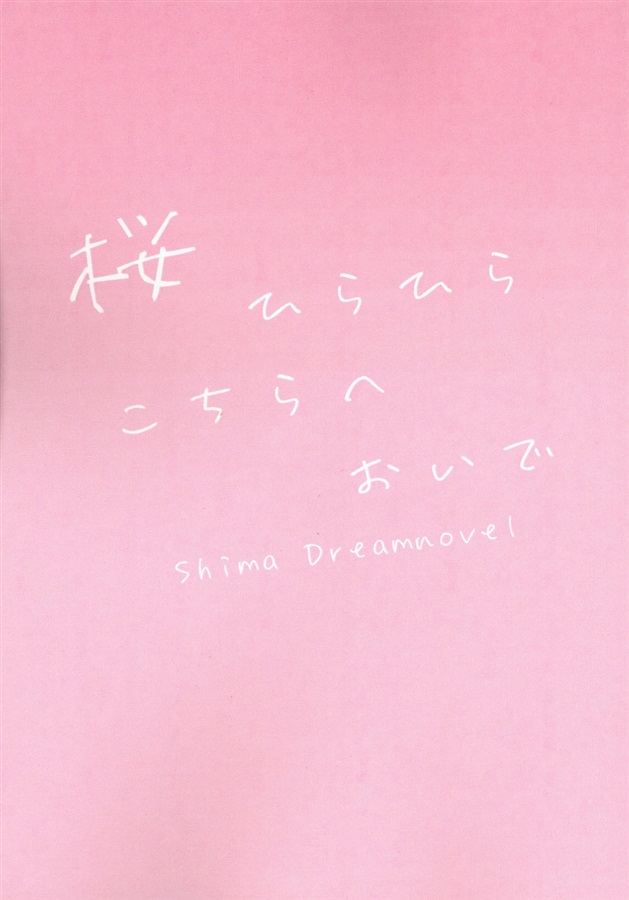 桜 ひらひら
こちらへ
おいで
Shima Dreamnovel